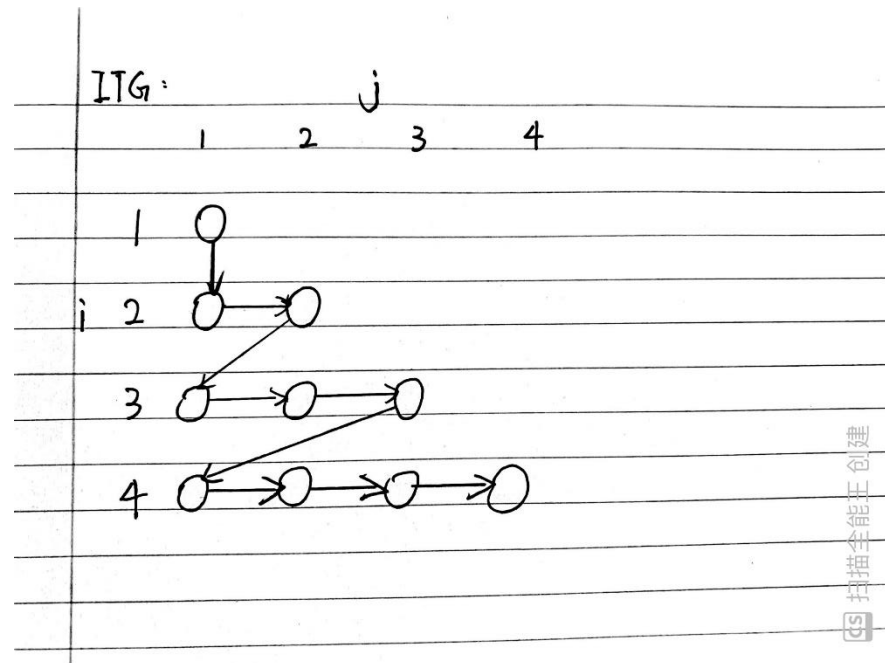 ITG:
j
1 2 3 4
1
i 2
3
4
CS 扫描全能王 创建